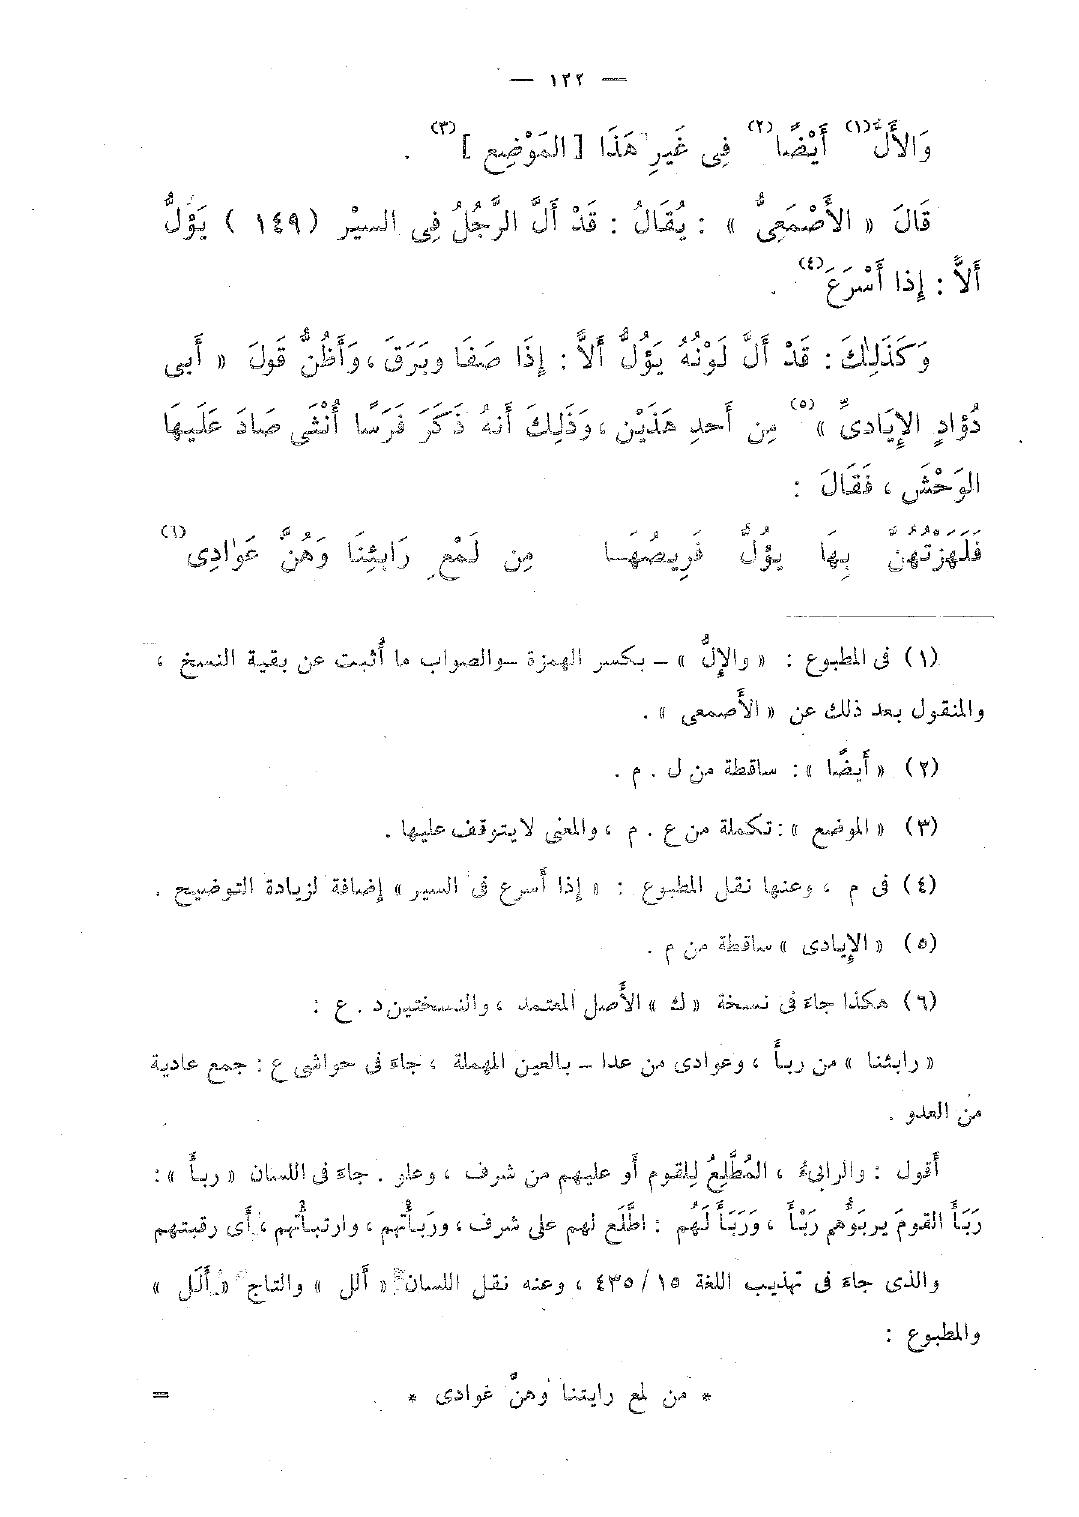 — ١٢٢ —
وَالأَلُّ(١) أَيْضًا(٢) فِى غَيرِ هَذَا [ المَوْضِع ](٣) .
قَالَ « الأَصْمَعِىُّ » : يُقَالُ : قَدْ أَلَّ الرَّجُلُ فِى السيْر (١٤٩ ) يَؤُلُّ
أَلاًّ : إِذا أَسْرَعَ(٤) .
وَكَذَلِكَ : قَدْ أَلَّ لَوْنُهُ يَؤُلُّ أَلاًّ : إِذَا صَفَا وبَرَقَ ، وَأَظُنُّ قَولَ « أَبى
دُؤادٍ الإِيَادىِّ »(٥) مِن أَحدِ هَذَيْن ، وَذَلِكَ أَنهُ ذَكَرَ فَرَسًا أُنْثَى صَادَ عَلَيهَا
الوَحْشَ ، فَقَالَ :
فَلَهَزتُهُنَّ بِهَا يؤُلُّ فَرِيصُهَـا مِن لَمْعِ رَابِئِنَا وَهُنَّ عَوَادِى(٦)
(١) فى المطبوع : « والإِلُّ » – بكسر الهمزة –والصواب ما أُثبت عن بقية النسخ ،
والمنقول بعد ذلك عن « الأَصمعى » .
(٢) « أَيضًا » : ساقطة من ل . م .
(٣) « الموضع » : تكملة من ع . م ، والمعنى لا يتوقف عليها .
(٤) فى م ، وعنها نقل المطبوع : « إذا أَسرع فى السير » إضافة لزيادة التوضيح .
(٥) « الإِيادى » ساقطة من م .
(٦) هكذا جاءَ فى نسخة « ك » الأَصل المعتمد ، والنسختين د . ع :
« رابئنا » من ربأَ ، وعوادى من عدا – بالعين المهملة ، جاءَ فى حواشى ع : جمع عادية
من العدو .
أَقول : والرابىءُ ، المُطَّلِعُ لِلقوم أو عليهم من شرف ، وعلو . جاءَ فى اللسان « ربأَ » :
رَبَأَ القومَ يربَؤُهم رَبْأً ، وَرَبَأَ لَهُم : اطَّلَع لهم على شرف ، ورَبأْتهم ، وارتبأْتهم ، أَى رقبتهم
والذى جاءَ فى تهذيب اللغة ١٥/ ٤٣٥ ، وعنه نقل اللسان « أَلل » والتاج « أَلَل »
والمطبوع :
* من لمع رايتنا وهنَّ غوادى * =